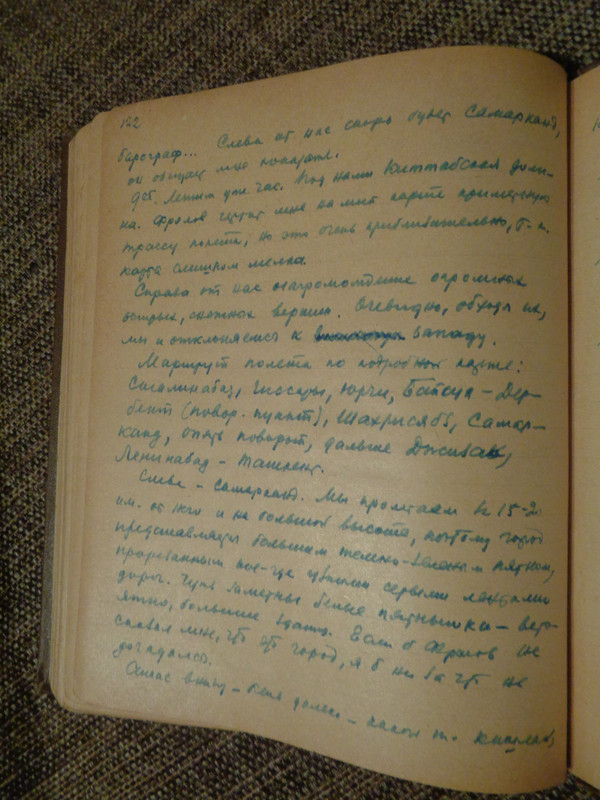 122
барограф... Слева от нас скоро будет Самарканд,
он обещал мне показать.
925. Летим уже час. Под нами Киттабская доли-
на. Фролов чертит мне на карте примерную
трассу полета, но это очень приблизительно, т. к.
карта слишком мелка.
Справа от нас нагромождение огромных
острых, снежных вершин. Очевидно, обходя их,
мы и отклоняемся к западу.
Маршрут полета по подробной карте:
Сталинабад, Гиссары, Юрчи, Байсун - Дер-
бент (повор. пункт), Шахрисябз, Самар-
канд, опять поворот, дальше Джизак,
Ленинабад - Ташкент.
Слева - Самарканд. Мы пролетаем в 15-20
км. от него и на большой высоте, поэтому город
представляется большим темно-зеленым пятном,
прорезанным кое-где серыми лентами
дорог. Чуть заметные белые пятнышки - веро-
ятно, большие здания. Если б Фролов не
сказал мне, что это город, я б ни за что не
догадался.
Сейчас внизу - были далеко - какой т.